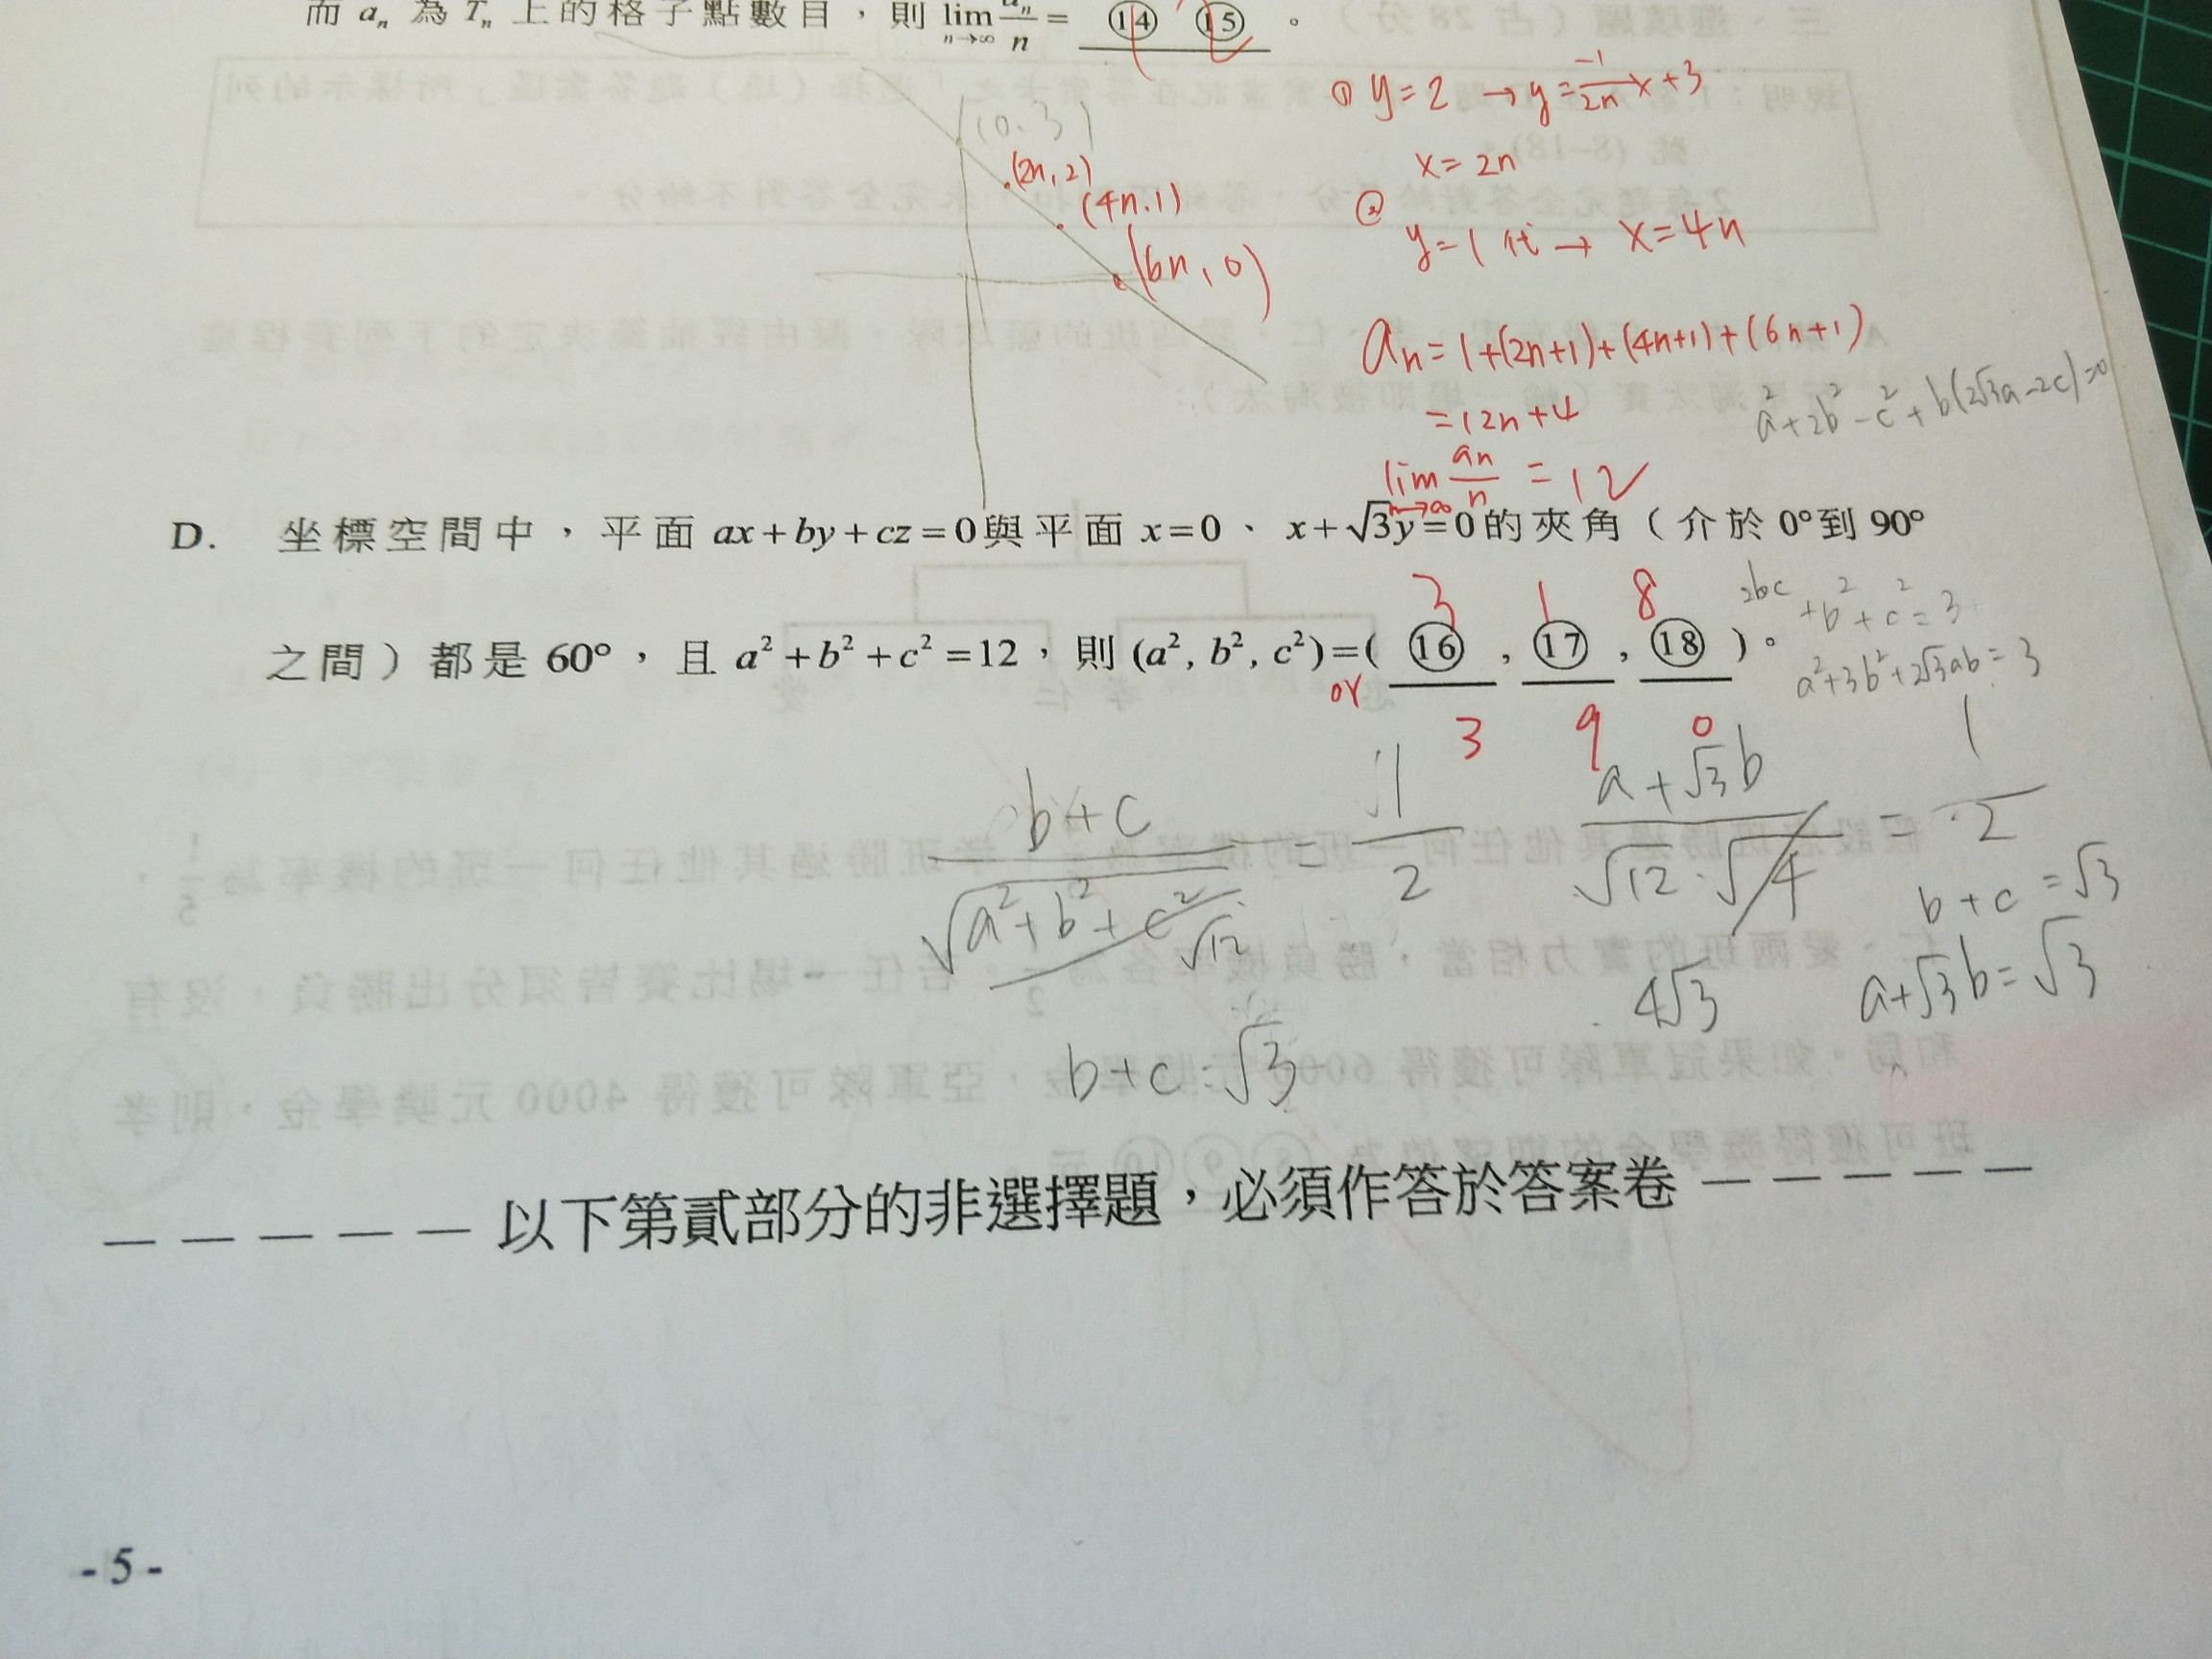 而 aₙ 為 Tₙ 上的格子點數目，則 lim n→∞ aₙ/n = ⑭ ⑮ 。
(0.3)
(2n,2)
(4n.1)
(6n,0)
① y=2 → y=-1/2n x+3
x=2n
②
y=1 代→ x=4n
an=1+(2n+1)+(4n+1)+(6n+1)
=12n+4
lim n→∞ an/n = 12
a²+2b²-c²+b(2√3a-2c)=0
D. 坐標空間中，平面 ax+by+cz=0與平面 x=0、x+√3y=0的夾角（介於 0°到 90°
3 1 8
之間）都是 60°，且 a²+b²+c²=12，則 (a², b², c²)=( ⑯ , ⑰ , ⑱ )。
or 3 9 0
2bc +b²+c²=3
a²+3b²+2√3ab=3
b+c/√a²+b²+c² √12 = 1/2
a+√3b/√12·√4 = 1/2
b+c=√3
a+√3b=√3
4√3
b+c=√3
－－－－－以下第貳部分的非選擇題，必須作答於答案卷－－－－－
- 5 -